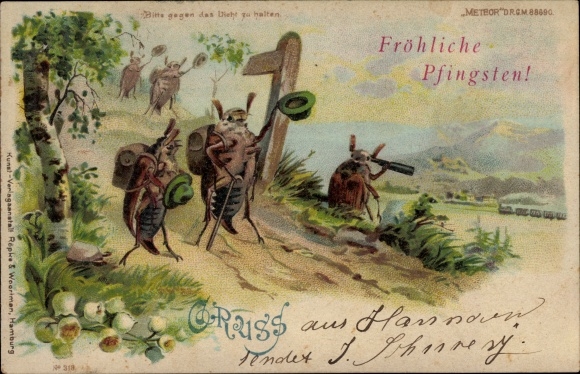 Bitte gegen das Licht zu halten.
„METEOR" D.R.G.M. 88690.
Fröhliche
Pfingsten!
Kunst-Verlagsanstalt Röpke & Woortman, Hamburg
GRUSS aus Hannover
sendet J.
No 318